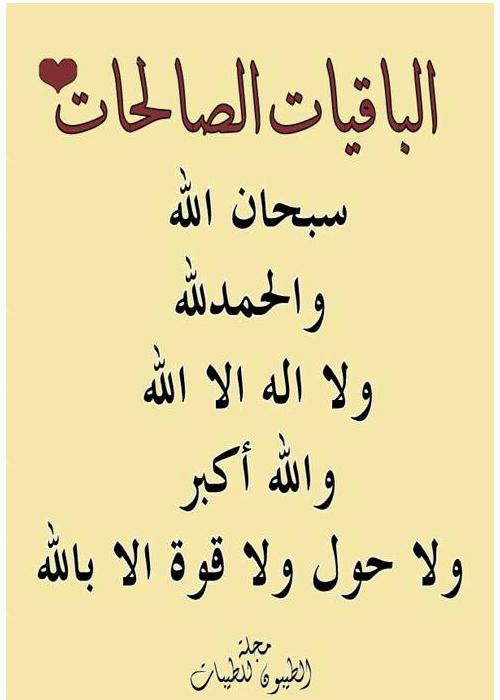 الباقيات الصالحات
سبحان الله
والحمدلله
ولا اله الا الله
والله أكبر
ولا حول ولا قوة الا بالله
مجلة
الطيبون للطيبات